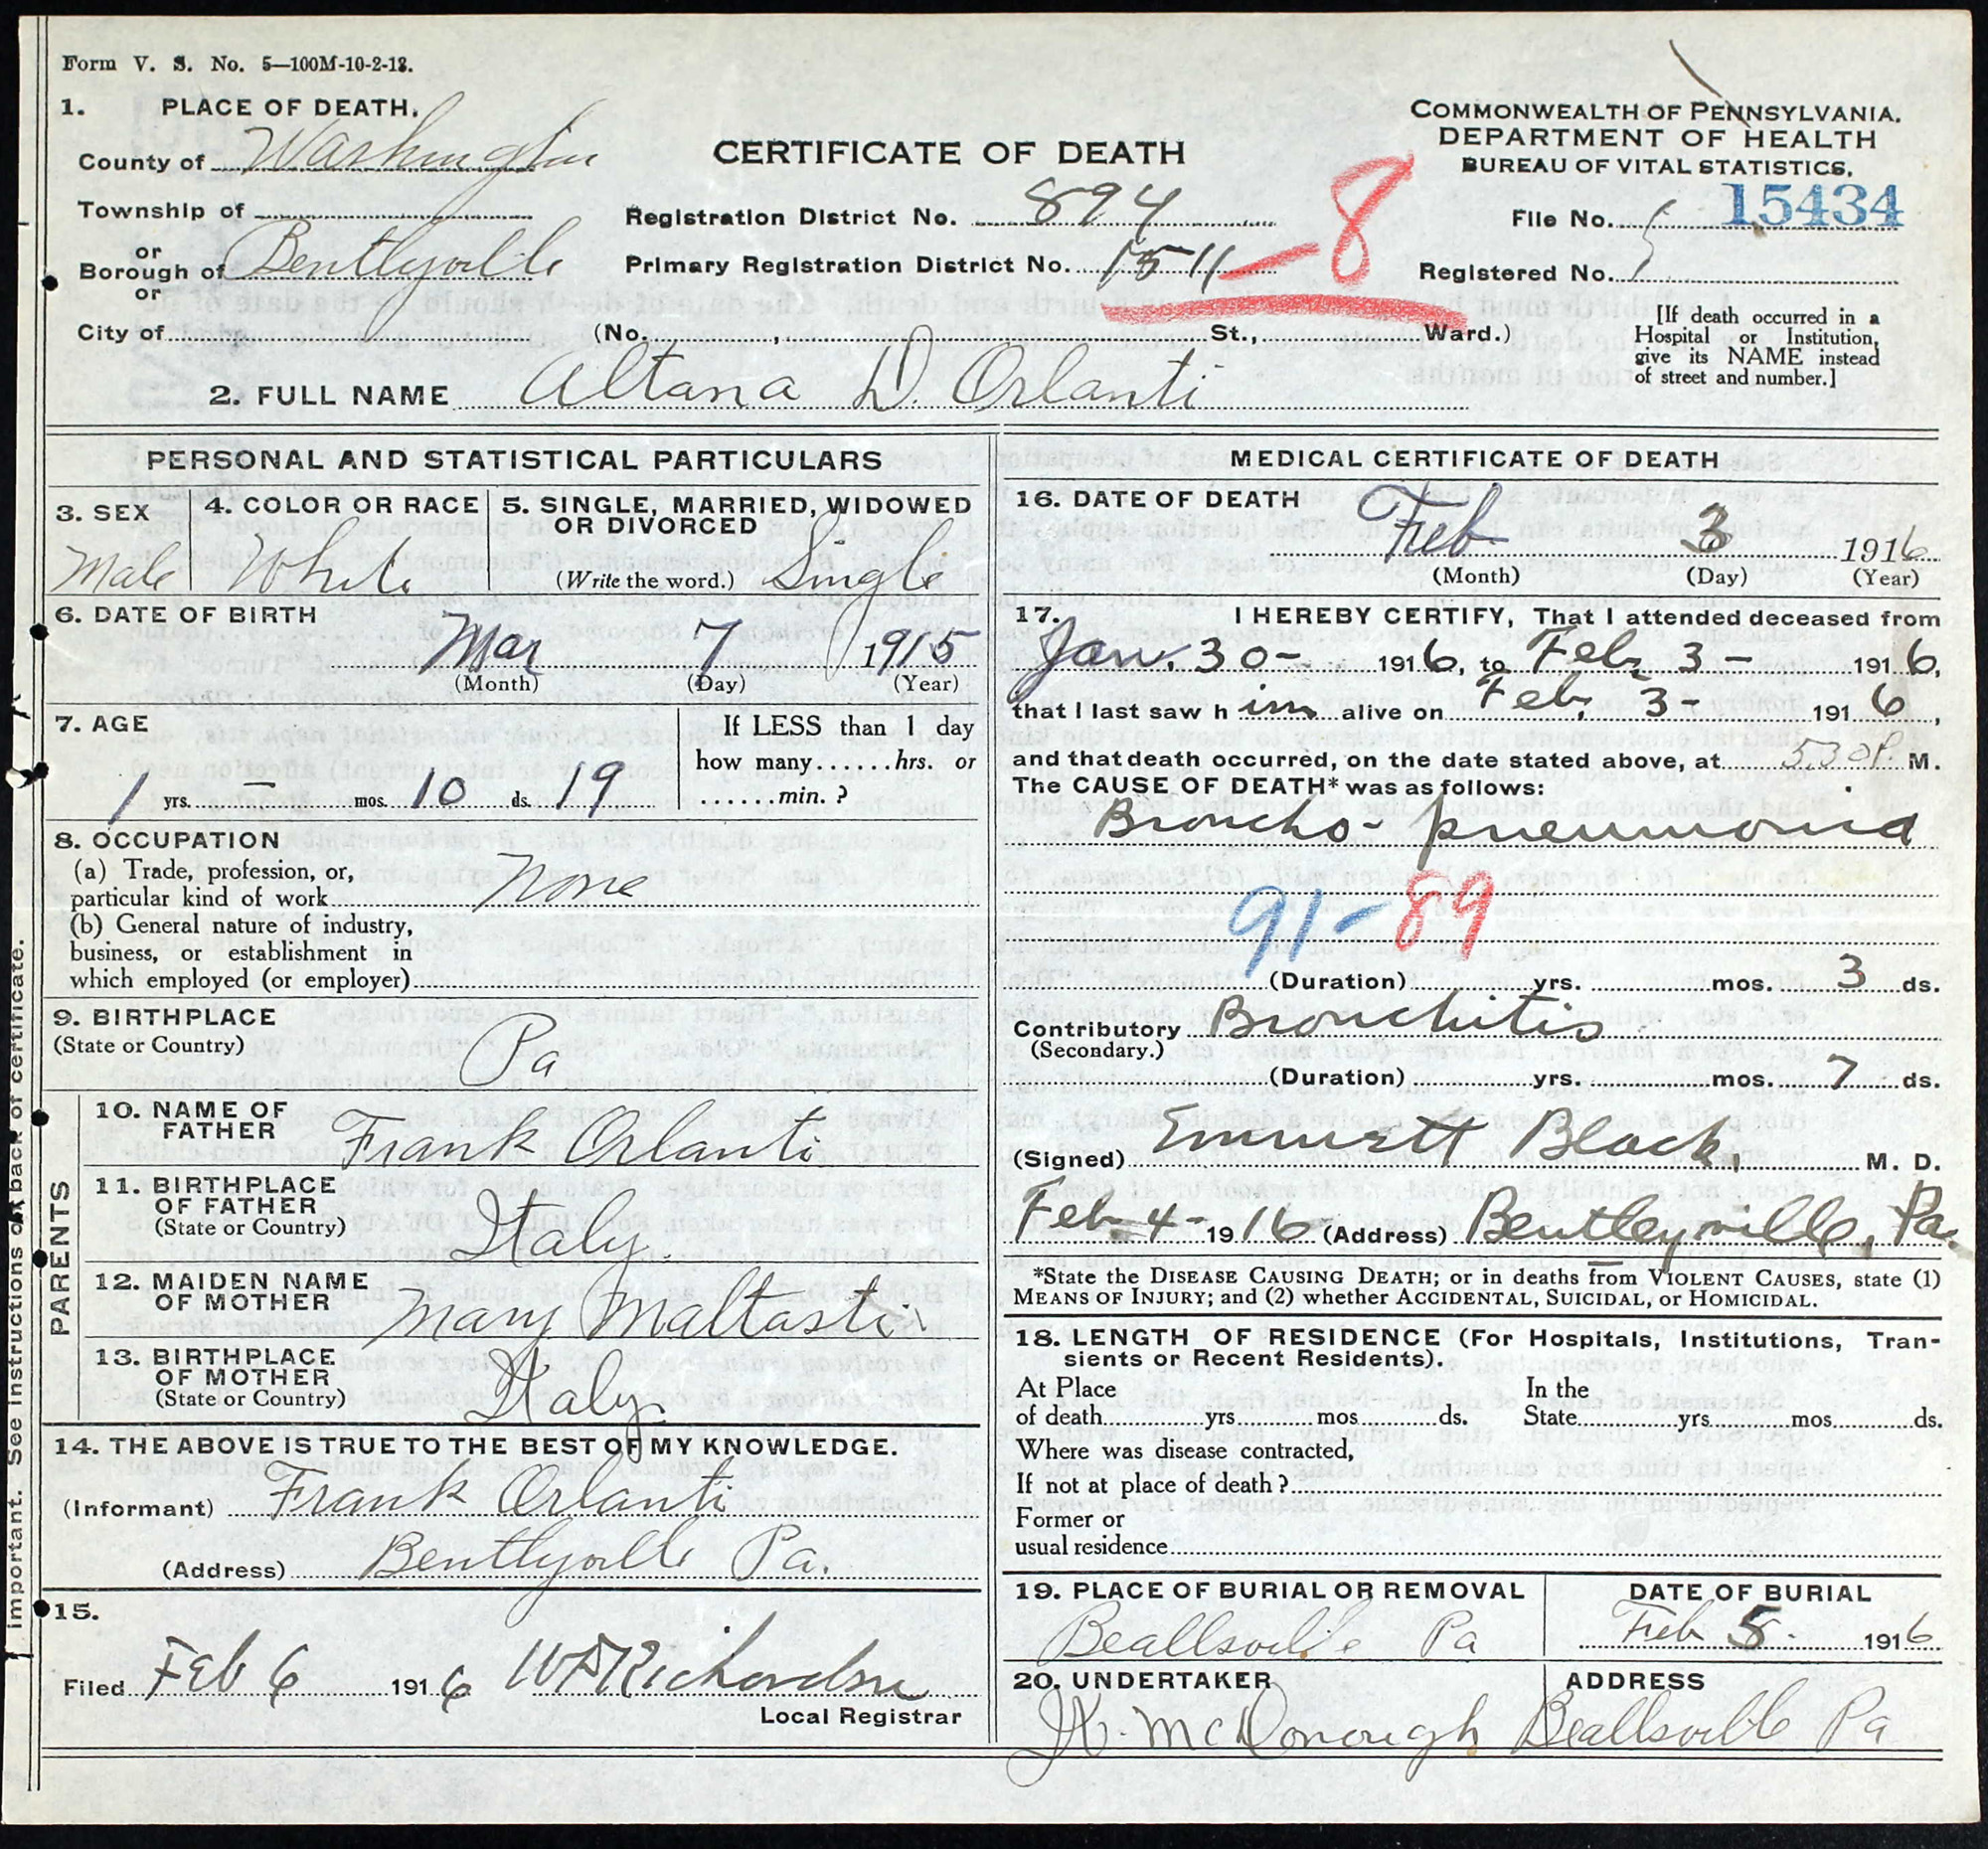 Form V. S. No. 5—100M-10-2-12.
1. PLACE OF DEATH.
County of Washington
Township of
or
Borough of Bentlyville
or
City of
CERTIFICATE OF DEATH
Registration District No. 894
Primary Registration District No. 1511 -8
(No. , St., Ward.)
COMMONWEALTH OF PENNSYLVANIA.
DEPARTMENT OF HEALTH
BUREAU OF VITAL STATISTICS.
File No. 15434
Registered No.
[If death occurred in a
Hospital or Institution,
give its NAME instead
of street and number.]
2. FULL NAME Altana D. Orlanti
PERSONAL AND STATISTICAL PARTICULARS
3. SEX
Male
4. COLOR OR RACE
White
5. SINGLE, MARRIED, WIDOWED
OR DIVORCED
(Write the word.) Single
6. DATE OF BIRTH
Mar 7 1915
(Month) (Day) (Year)
7. AGE
1 yrs. — mos. 10 ds. 19
If LESS than 1 day
how many......hrs. or
......min. ?
8. OCCUPATION
(a) Trade, profession, or,
particular kind of work None
(b) General nature of industry,
business, or establishment in
which employed (or employer)
9. BIRTHPLACE
(State or Country) Pa
PARENTS
10. NAME OF
FATHER Frank Orlanti
11. BIRTHPLACE
OF FATHER
(State or Country) Italy.
12. MAIDEN NAME
OF MOTHER Mary Maltasti
13. BIRTHPLACE
OF MOTHER
(State or Country) Italy.
14. THE ABOVE IS TRUE TO THE BEST OF MY KNOWLEDGE.
(Informant) Frank Orlanti
(Address) Bentlyville Pa.
15.
Filed Feb 6 1916 W F Richardson
Local Registrar
MEDICAL CERTIFICATE OF DEATH
16. DATE OF DEATH
Feb 3 1916
(Month) (Day) (Year)
17. I HEREBY CERTIFY, That I attended deceased from
Jan. 30- 1916, to Feb. 3- 1916,
that I last saw h im alive on Feb. 3- 1916,
and that death occurred, on the date stated above, at 5.30 P. M.
The CAUSE OF DEATH* was as follows:
Broncho-pneumonia
91-89
(Duration) yrs. mos. 3 ds.
Contributory Bronchitis
(Secondary.)
(Duration) yrs. mos. 7 ds.
(Signed) Emmett Black, M. D.
Feb. 4- 1916 (Address) Bentleyville, Pa.
*State the DISEASE CAUSING DEATH; or in deaths from VIOLENT CAUSES, state (1)
MEANS OF INJURY; and (2) whether ACCIDENTAL, SUICIDAL, or HOMICIDAL.
18. LENGTH OF RESIDENCE (For Hospitals, Institutions, Tran-
sients or Recent Residents).
At Place In the
of death yrs mos ds. State yrs mos ds.
Where was disease contracted,
If not at place of death ?
Former or
usual residence
19. PLACE OF BURIAL OR REMOVAL
Beallsville Pa
DATE OF BURIAL
Feb 5. 1916
20. UNDERTAKER
McDonough
ADDRESS
Beallsville Pa
important. See instructions on back of certificate.